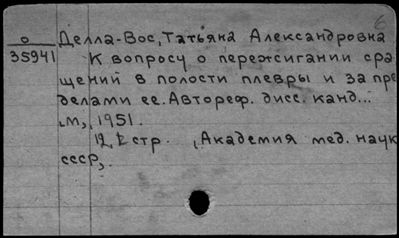 6
о
35941
Делла-Вос, Татьяна Александровна
К вопросу о пережигании сра
щений в полости плевры и за пре
делами ее. Автореф. дисс. канд...
М, 1951.
12, стр. (Академия мед. наук
СССР).